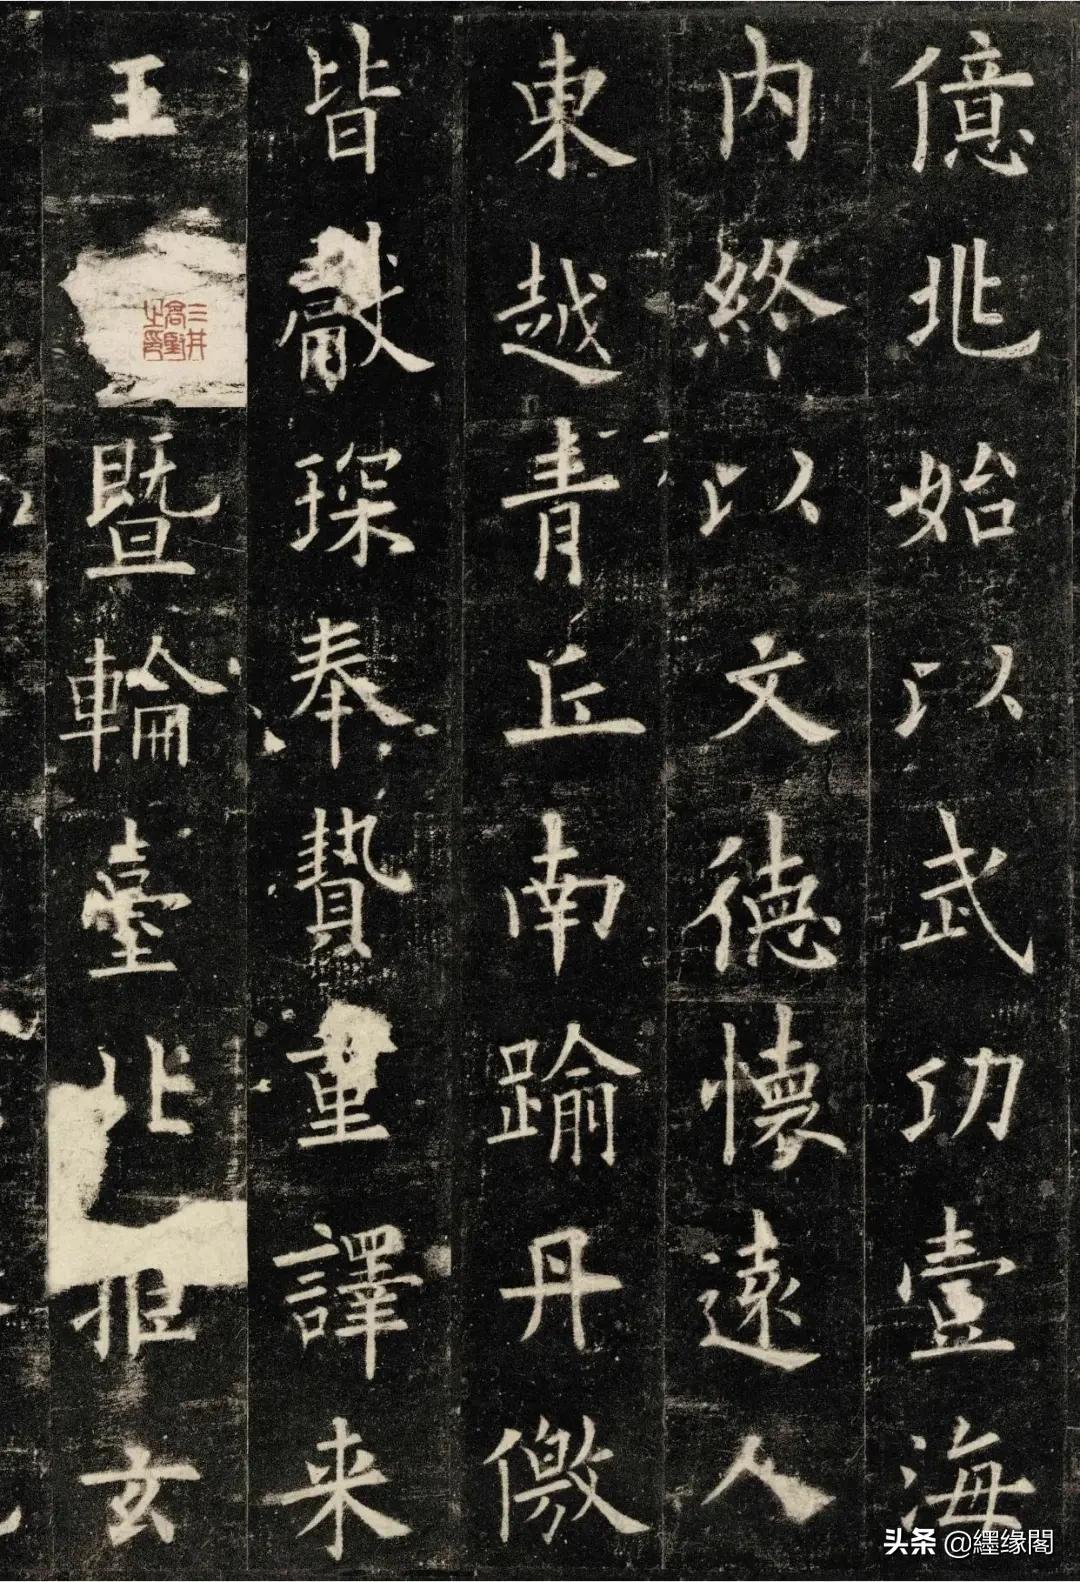 億兆始以武功壹海
内終以文德懷遠人
東越青丘南踰丹儌
皆獻琛奉贄重譯来
王暨輪臺北拒玄
三井高堅之印
头条 @纆缘閣